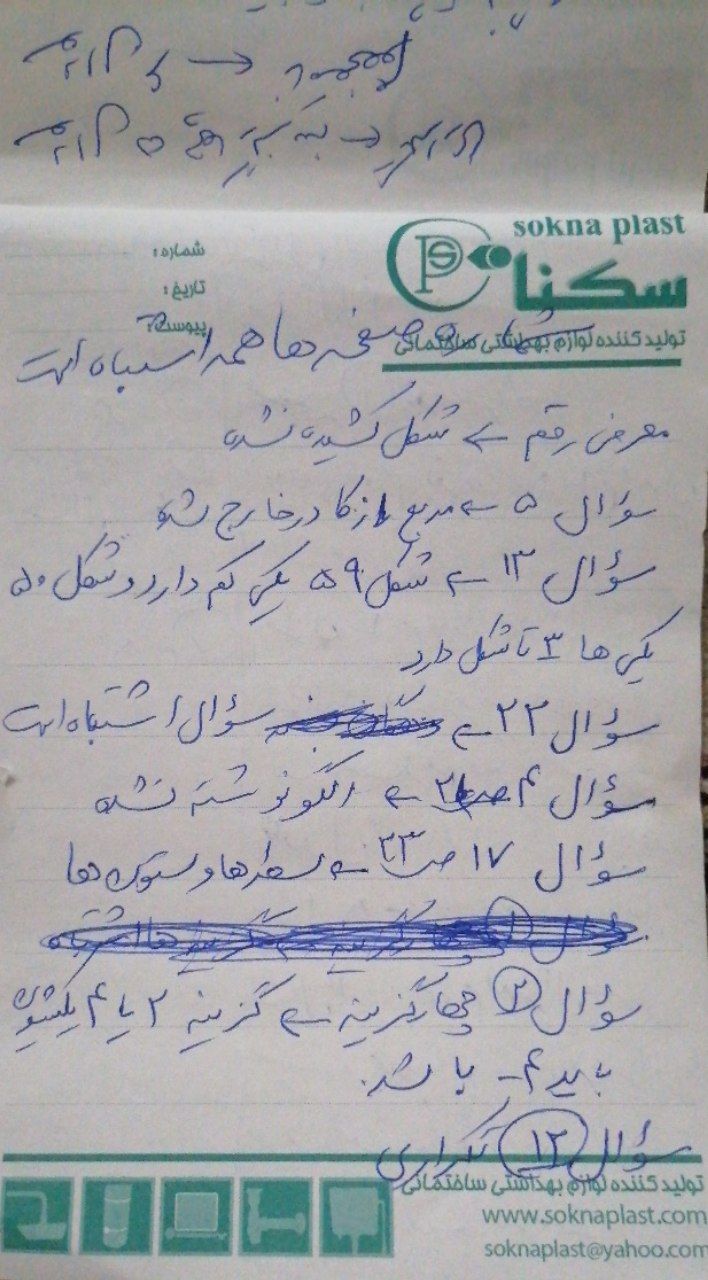 sokna plast
سکنا
شماره:
تاریخ:
پیوست:
تولیدکننده لوازم بهداشتی ساختمانی
صفحه ها همه اشتباه است
معرفی رقم ← شکل کشیده نشده
سؤال ۵ ← مربع از کادر خارج شده
سؤال ۱۳ ← شکل ۵۹ یکی کم دارد و شکل ۵۰
یکی ها ۳ تا شکل دارد
سؤال ۲۲ ← سؤال اشتباه است
سؤال ۴ ← الگو نوشته نشده
سؤال ۱۷ ص ۲۳ ← سطرها و ستون ها
سؤال ۲ چهارگزینه ← گزینه ۲ یا ۴ یکیشون
باید ۴- باشد.
سؤال ۱۲ تکراری
تولیدکننده لوازم بهداشتی ساختمانی
www.soknaplast.com
soknaplast@yahoo.com